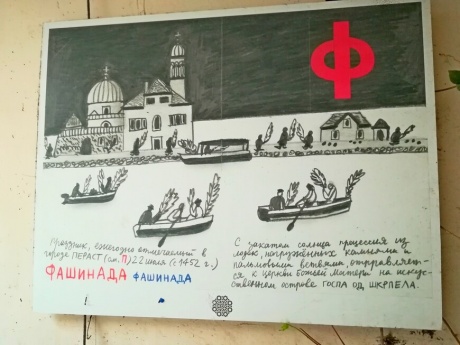 Ф
Праздник, ежегодно отмечаемый в
городе ПЕРАСТ (см. П) 22 июля (с 1452 г.)
ФАШИНАДА ФАШИНАДА
С закатом солнца процессия из
лодок, нагруженных камнями и
пальмовыми ветвями, отправляет-
ся к церкви Божьей Матери на искус-
ственном острове ГОСПА ОД ШКРПЕЛА.